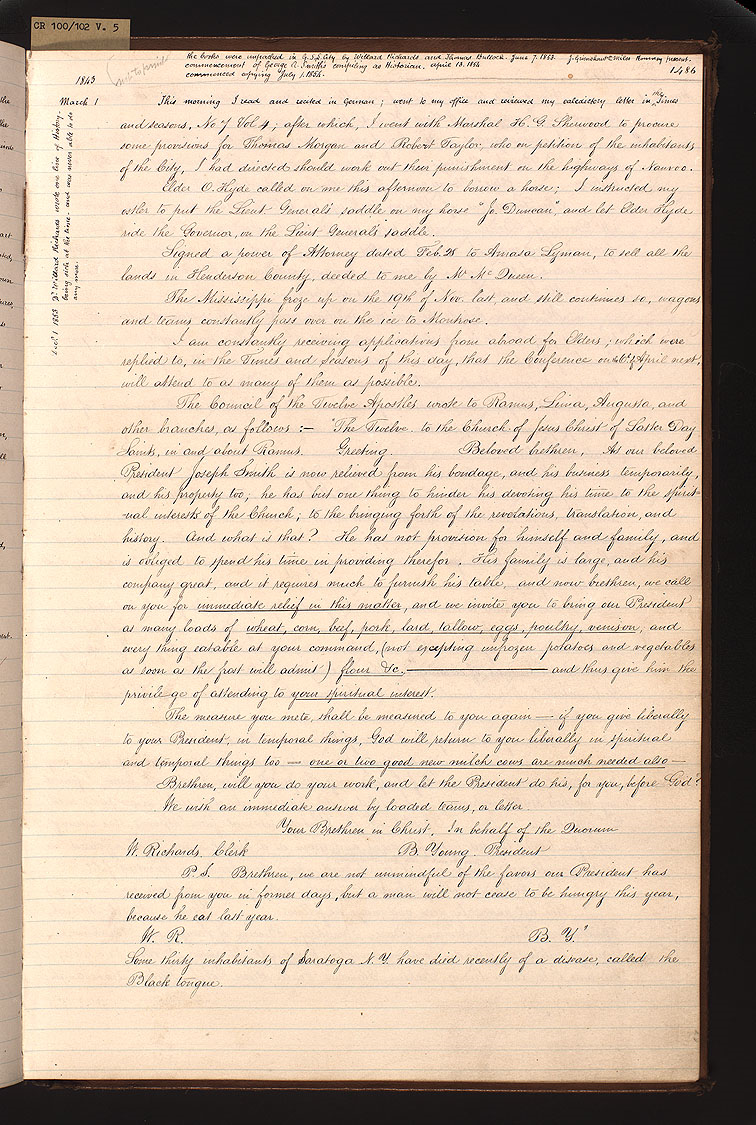 CR 100/102 V. 5
the books were unpacked in G. S. L. City by Willard Richards and Thomas Bullock. June 7. 1853. J. Grimshaw & Miles Romney present.
commencement of George A. Smith's compiling as Historian. april 13. 1854
commenced copying July 1. 1854.
1486
1843
March 1
Decr. 1 1853 Dr. Willard Richards wrote one line of History—
being sick at the time— and was never able to do
any more.
This morning I read and recited in German; went to my office and reviewed my valedictory letter in the Times
and seasons, No 7 Vol 4; after which, I went with Marshal H. G. Sherwood to procure
some provisions for Thomas Morgan and Robert Taylor, who on petition of the inhabitants
of the City, I had directed should work out their punishment on the highways of Nauvoo.
Elder O. Hyde called on me this afternoon to borrow a horse; I instructed my
ostler to put the Lieut General's saddle on my horse "Jo. Duncan", and let Elder Hyde
ride the Governor, on the Lieut General's saddle.
Signed a power of Attorney dated Feb. 28 to Amasa Lyman, to sell all the
lands in Henderson County, deeded to me by Mr McQueen.
The Mississippi froze up on the 19th of Nov. last, and still continues so, wagons
and teams constantly pass over on the ice to Montrose.
I am constantly receiving applications from abroad for Elders; which were
replied to, in the Times and Seasons of this day, that the Conference on the 6th of April next,
will attend to as many of them as possible.
The Council of the Twelve Apostles wrote to Ramus, Lima, Augusta, and
other branches, as follows:— "The Twelve. to the Church of Jesus Christ of Latter Day
Saints, in and about Ramus. Greeting. Beloved brethren, As our beloved
President Joseph Smith is now relieved from his bondage, and his business temporarily,
and his property too; he has but one thing to hinder his devoting his time to the spirit-
ual interests of the Church; to the bringing forth of the revelations, translation, and
history. And what is that? He has not provision for himself and family, and
is obliged to spend his time in providing therefor. His family is large, and his
company great, and it requires much to furnish his table, and now brethren, we call
on you for immediate relief in this matter, and we invite you to bring our President
as many loads of wheat, corn, beef, pork, lard, tallow, eggs, poultry, venison, and
every thing eatable at your command, (not excepting unfrozen potatoes and vegetables
as soon as the frost will admit) flour &c. ——— and thus give him the
privilege of attending to your spiritual interest.
The measure you mete, shall be measured to you again — if you give liberally
to your President, in temporal things, God will return to you liberally in spiritual
and temporal things too — one or two good new milch cows are much needed also —
Brethren, will you do your work, and let the President do his, for you, before God?
We wish an immediate answer by loaded teams, or letter
Your Brethren in Christ. In behalf of the Quorum
W. Richards. Clerk B. Young. President
P. S. Brethren, we are not unmindful of the favors our President has
received from you in former days, but a man will not cease to be hungry this year,
because he eat last year.
W. R. B. Y."
Some thirty inhabitants of Saratoga N. Y. have died recently of a disease, called the
Black tongue.